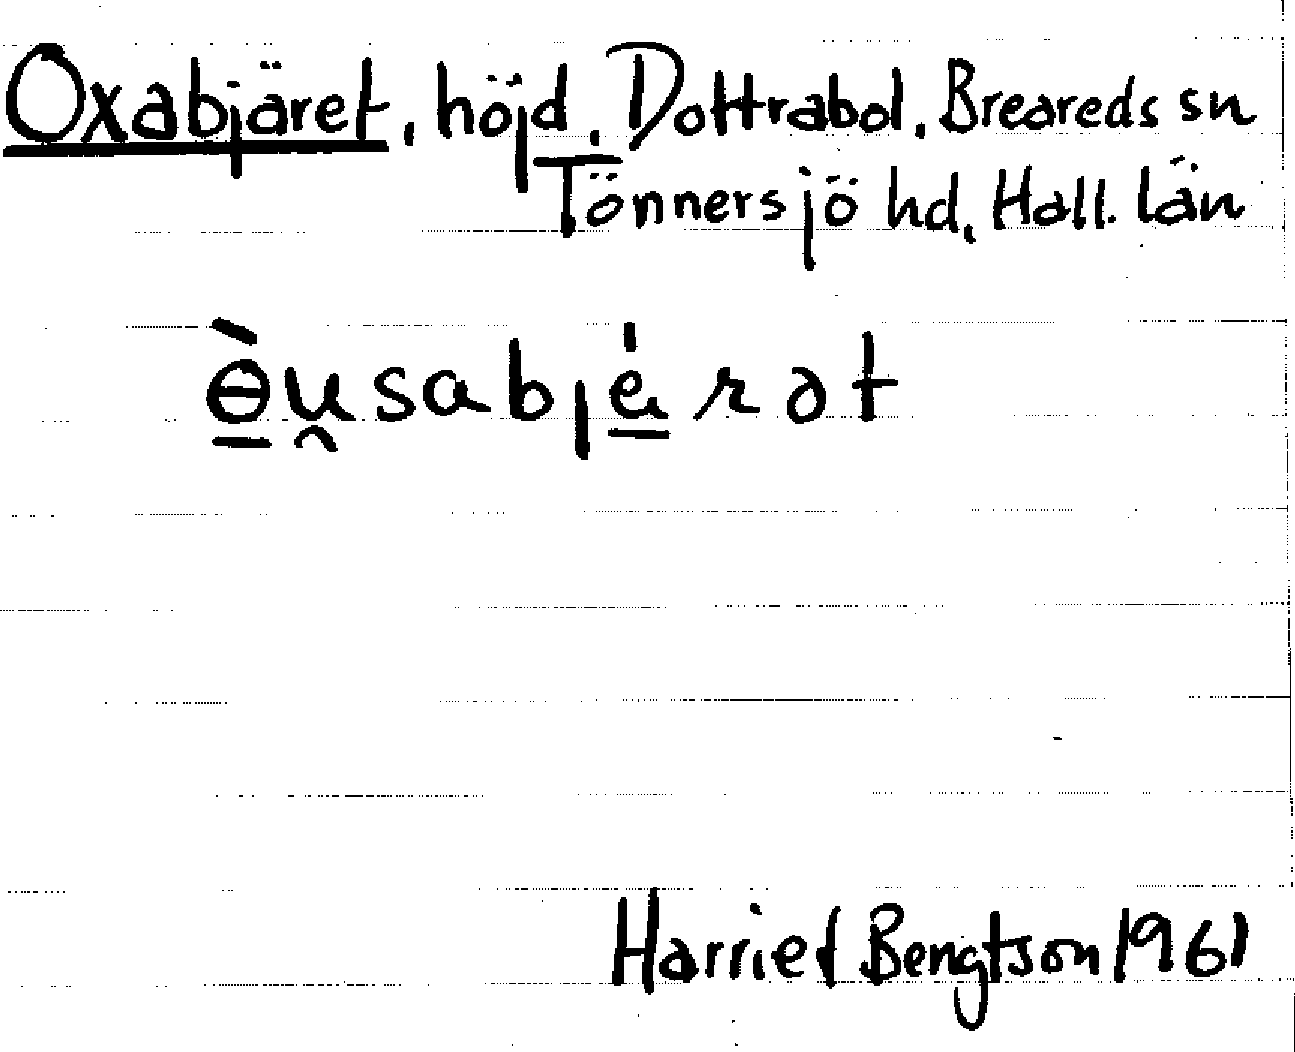 Oxabjäret, höjd, Dottrabol, Breareds sn
Tönnersjö hd, Hall. län
ɵ̀u̯sabjérət
Harriet Bengtson 1961